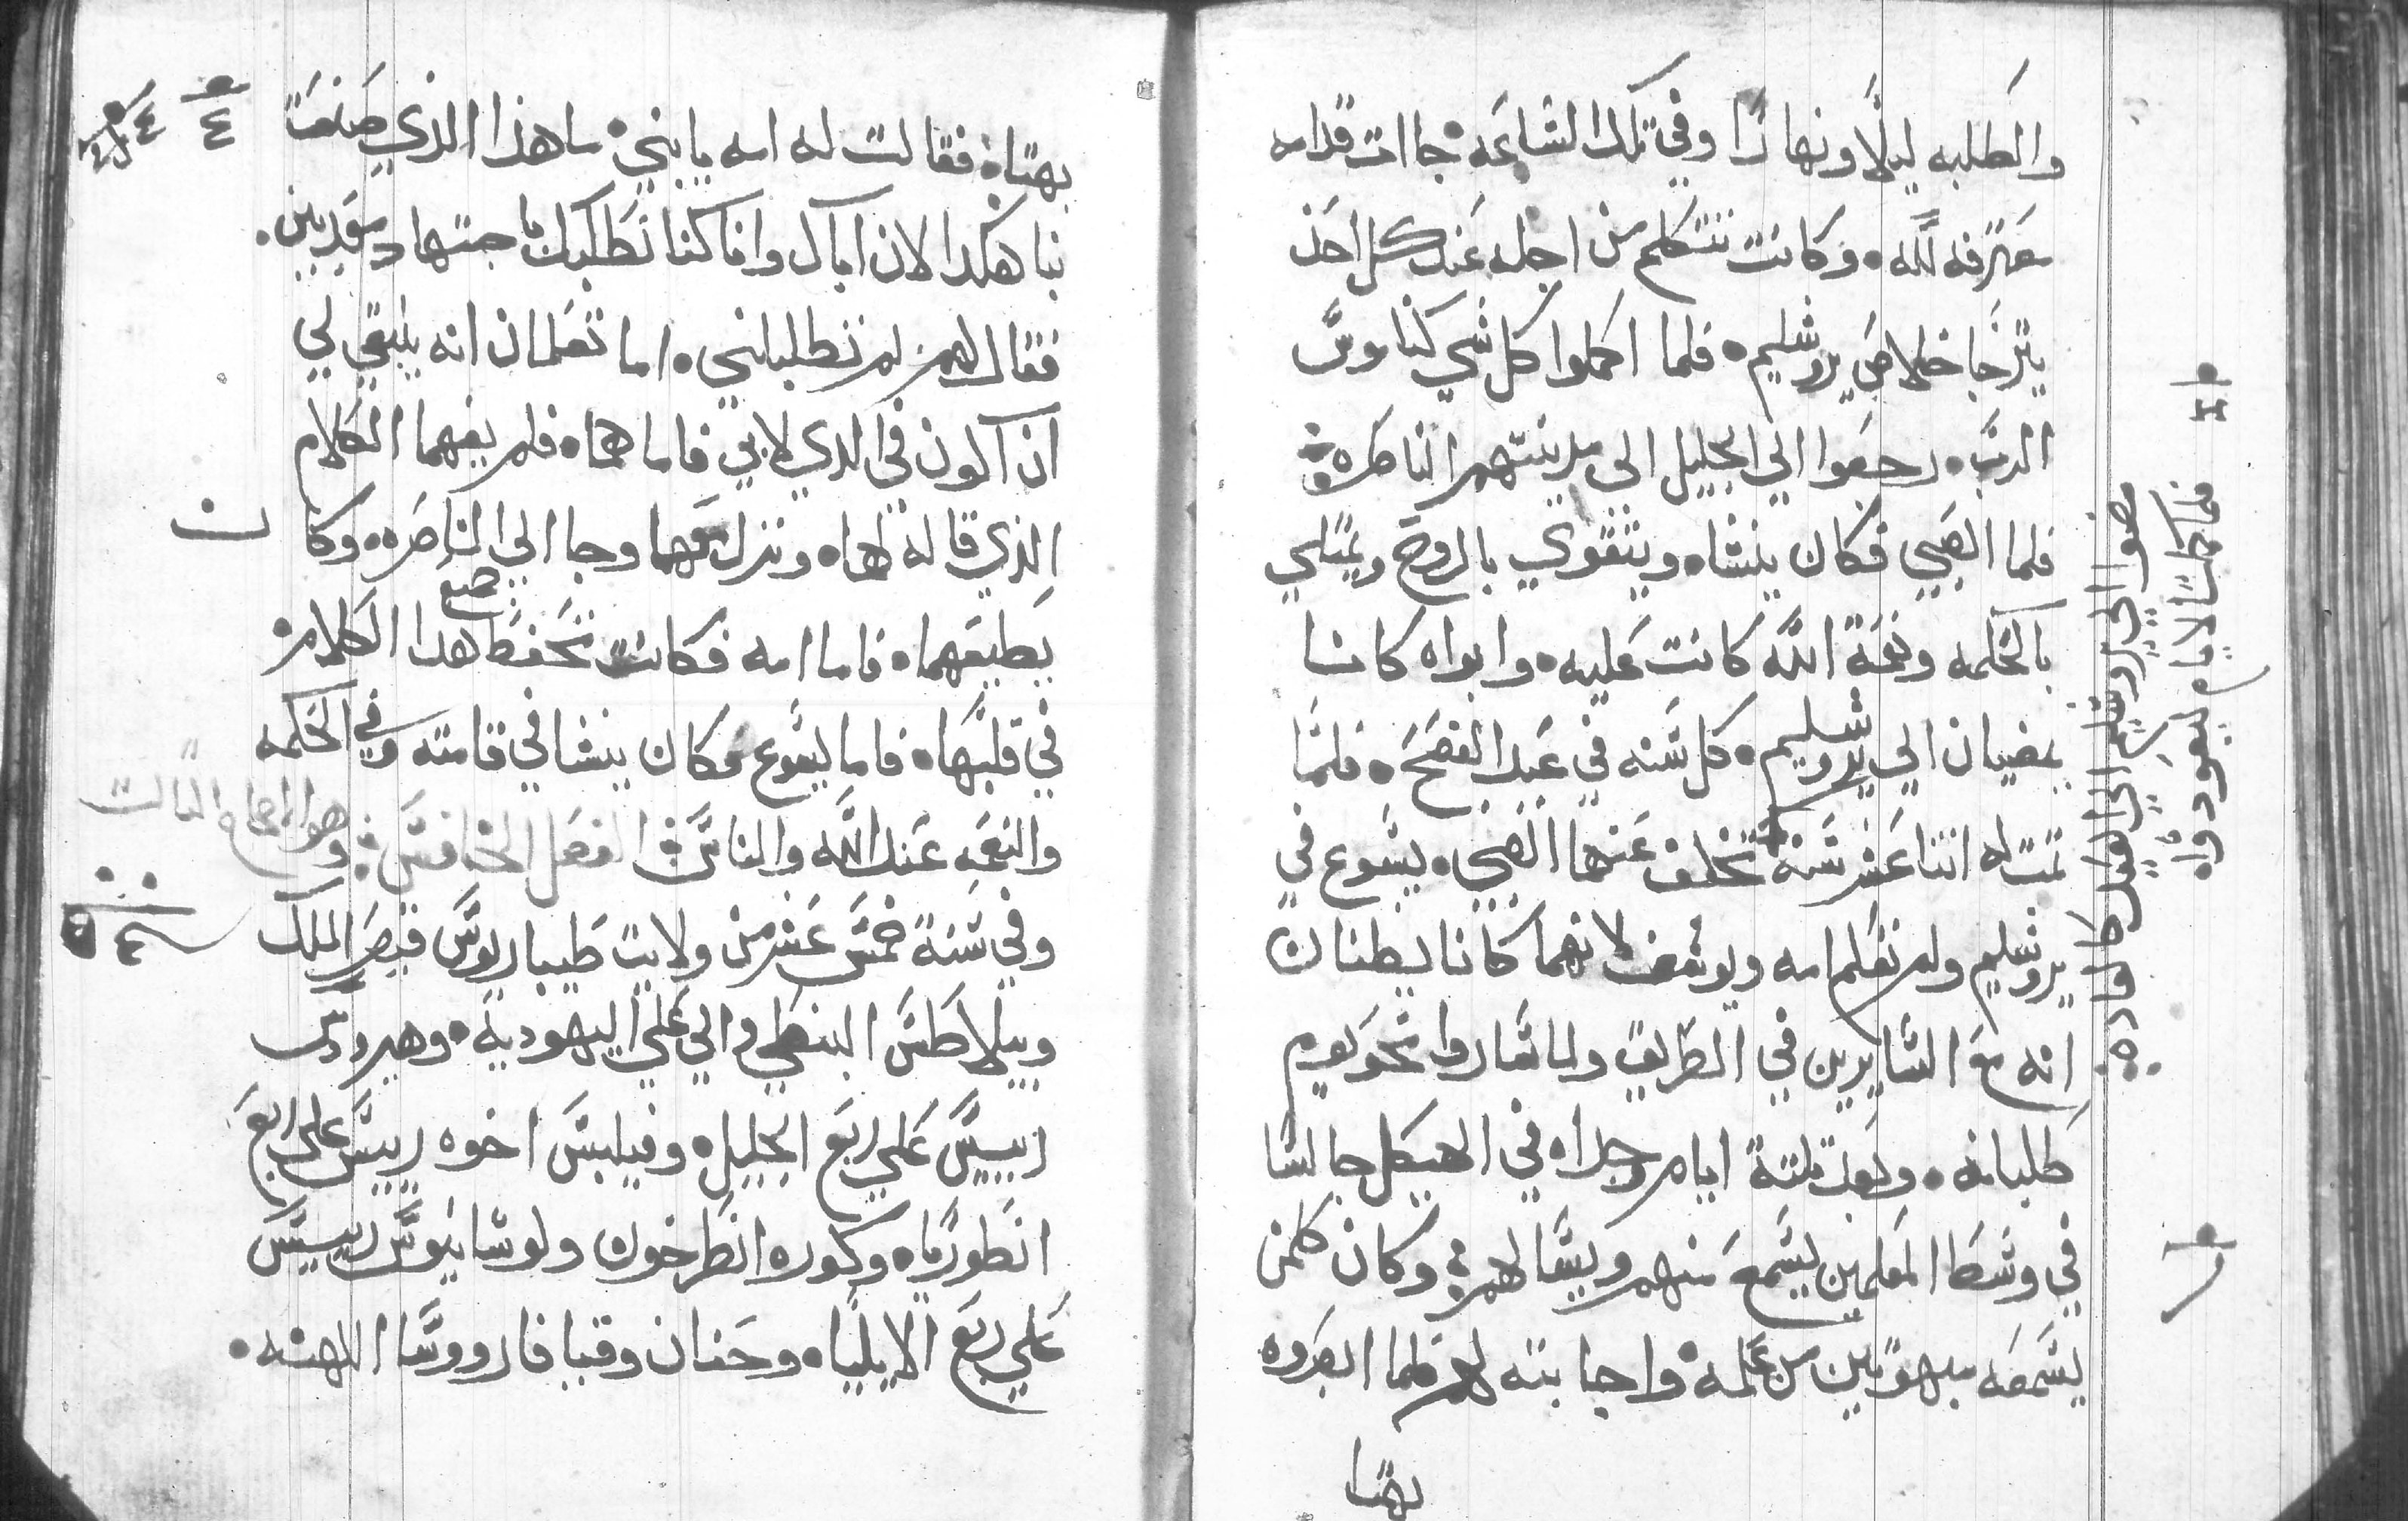 والطلبه ليلًا ونهارًا وفي تلك الساعه جاات قدامه
معترفه لله. وكانت تتكلم من اجله عند كل احد
يترجا خلاص يروشليم. فلما اكملوا كل شي كناموس
الرب. رجعوا الي الجليل الي مدينتهم الناصره.
فلما الصبي فكان ينشاه ويتقوي بالروح ويمتلي
بالحكمه ونعمة الله كانت عليه. وابواه كانا
يمضيان الي يروشليم. كل سنه في عيد الفصح. فلما
تمت له اتنا عشر سنه
تخلف عنهما الصبي. يسوع في
يروشليم ولم تعلم امه ويوسف لانهما كانا يظنان
انه مع السايرين في الطريق ولما ساروا نحو يوم
طلبانه. وبعد تلتة ايام وجداه في الهيكل جالسا
في وسط المعلمين يسمع منهم ويسالهم. وكان كلمن
يسمعه مبهوتين من علمه واجابته لهم فلما ابصروه
بهتا
فلما كملت الايام ليعودواه
مضوا الي يروشليم الي العيد كالعاده
بهتاه فقالت له امه يابني. ما هذا الذي صنعت
بنا هكدا لان اباك وانا كنا نطلبك
فقال لهم لم تطلباني. اما تعلمان انه ينبغي لي
ان اكون في الدي لابي فاما هماه فلم يفهما الكلام
الذي قاله لهماه ونزل معهما وجا الي الناصره. وكان
يطيعهما. فاما امه فكانت تحفظ
هدا الكلام
في قلبها. فاما يسوع فكان ينشا في قامته وفي الحكمه
والنعمه عند الله والناس الفصل الخامس وهو الاصحاح التالت
وفي سنة خمس عشر من ولايت طيباريوس قيصر الملك
وبيلاطس البنطي والي علي اليهودية. وهيرودس
رييس علي ربع الجليل. وفيلبس اخوه رييس علي ربع
انطورياه وكوره انطرخون ولوسانيوس رييس
علي ربع الابلياه وحنان وقيافا رووسا الكهنه.